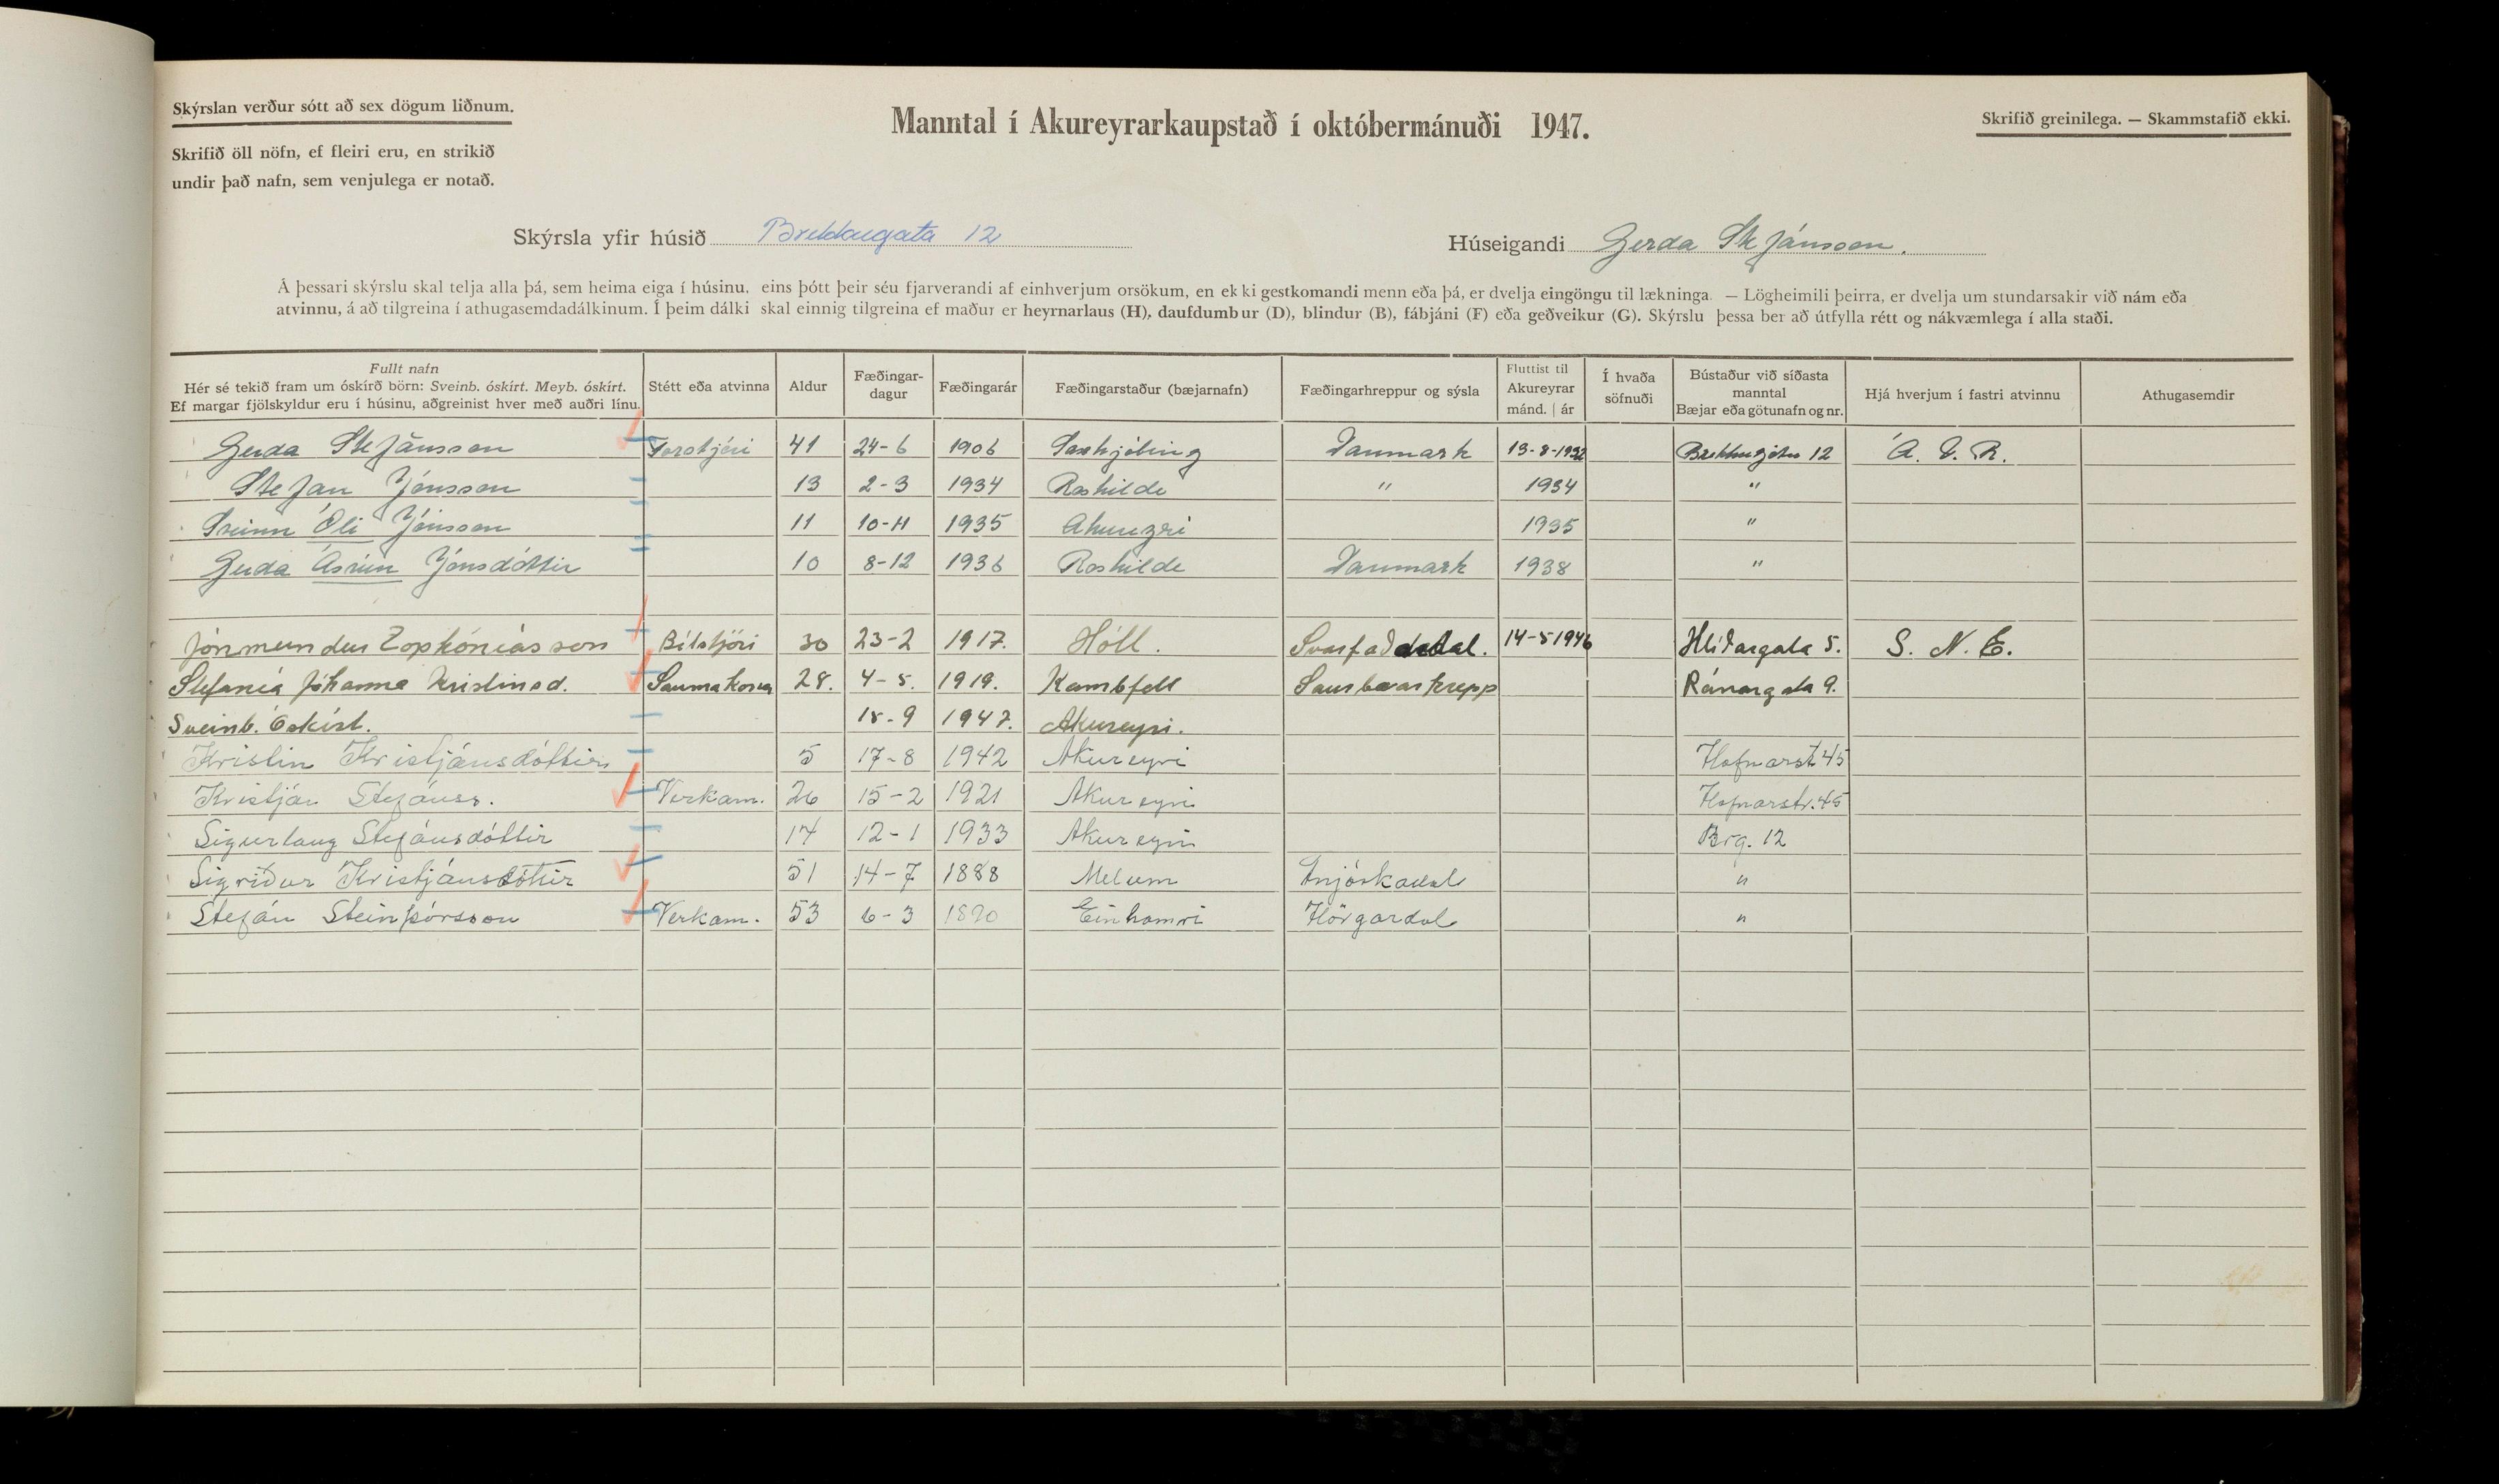 Skýrslan verður sótt að sex dögum liðnum.
Manntal í Akureyrarkaupstað í októbermánuði 1947.
Skrifið greinilega. — Skammstafið ekki.
Skrifið öll nöfn, ef fleiri eru, en strikið
undir það nafn, sem venjulega er notað.
Skýrsla yfir húsið Brekkugata 12
Húseigandi Gerda Stefánsson.
Á þessari skýrslu skal telja alla þá, sem heima eiga í húsinu, eins þótt þeir séu fjarverandi af einhverjum orsökum, en ekki gestkomandi menn eða þá, er dvelja eingöngu til lækninga. — Lögheimili þeirra, er dvelja um stundarsakir við nám eða
atvinnu, á að tilgreina í athugasemdadálkinum. Í þeim dálki skal einnig tilgreina ef maður er heyrnarlaus (H), daufdumbur (D), blindur (B), fábjáni (F) eða geðveikur (G). Skýrslu þessa ber að útfylla rétt og nákvæmlega í alla staði.
Fullt nafn
Hér sé tekið fram um óskírð börn: Sveinb. óskírt. Meyb. óskírt.
Ef margar fjölskyldur eru í húsinu, aðgreinist hver með auðri línu.
Stétt eða atvinna
Aldur
Fæðingar-
dagur
Fæðingarár
Fæðingarstaður (bæjarnafn)
Fæðingarhreppur og sýsla
Fluttist til
Akureyrar
mánd. | ár
Í hvaða
söfnuði
Bústaður við síðasta
manntal
Bæjar eða götunafn og nr.
Hjá hverjum í fastri atvinnu
Athugasemdir
Gerda Stefánsson Forstjóri 41 24-6 1906 Saxkjöbing Danmark 13-8-1932 Brekkugötu 12
Stefan Jónsson 13 2-3 1934 Roskilde " 1934 "
Sveinn Óli Jónsson 11 10-11 1935 Akureyri 1935 "
Gerda Ásrún Jónsdóttir 10 8-12 1936 Roskilde Danmark 1938 "
Jónmundur Zophóníasson Bílstjóri 30 23-2 1917. Hóll. Svarfaðardal. 14-5 1946 Hlíðargata 5. S. N. E.
Stefanía Jóhanna Kristinsd. Saumakona 28. 4-5. 1919. Kambfell Saurbæarhrepp Ránargata 9.
Sveinb. Óskírt. 18-9 1947. Akureyri.
Kristin Kristjánsdóttir 5 17-8 1942 Akureyri Hafnarst 45
Kristján Stefánss. Verkam. 26 15-2 1921 Akureyri Hafnarstr. 45
Sigurlaug Stefánsdóttir 14 12-1 1933 Akureyri Brg. 12
Sigríður Kristjánsdóttir 51 14-7 1888 Melum Fnjóskadal "
Stefán Steinþórsson Verkam. 53 6-3 1890 Einhamri Hörgardal "